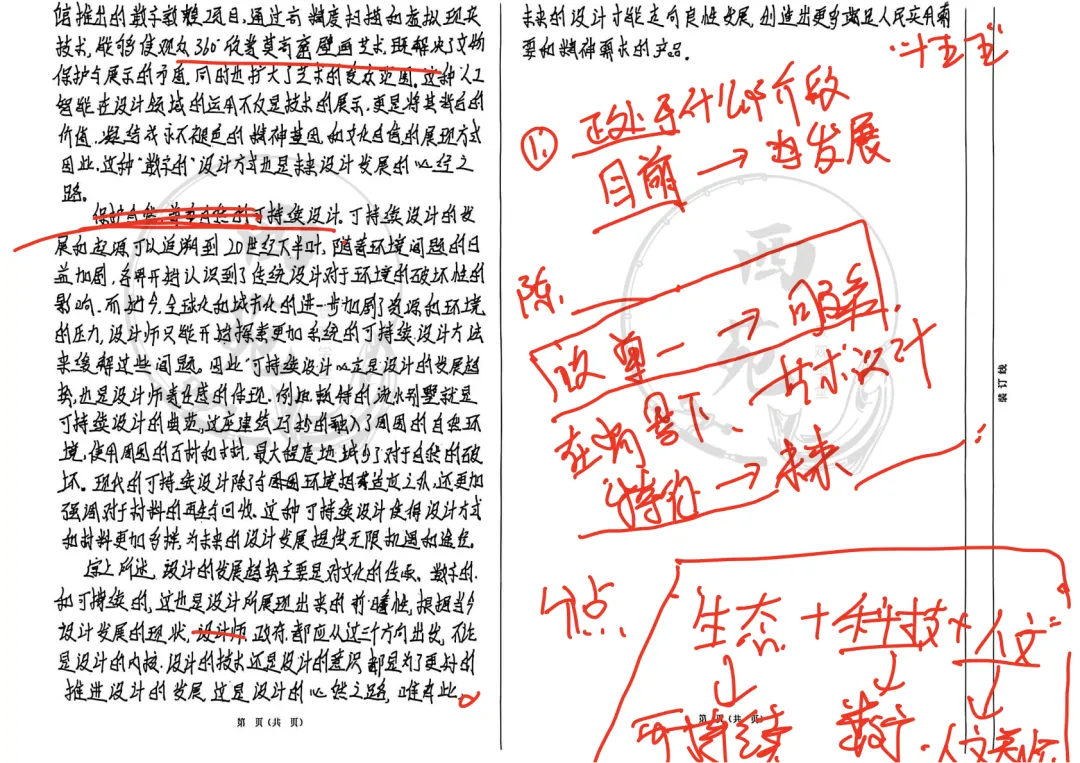 馆推出的数字敦煌项目,通过高精度扫描和虚拟现实
技术,能够使观众360°欣赏莫高窟壁画艺术,既解决了文物
保护与展示的矛盾,同时也扩大了艺术的受众范围。这种人工
智能在设计领域的运用不仅是技术的展示,更是将其背后的
价值,凝结成永不褪色的精神基因和文化自信的展现方式
因此,这种"数字的"设计方式也是未来设计发展的必经之
路。
保护自然,尊重自然的可持续设计。可持续设计的发
展和起源可以追溯到20世纪下半叶,随着环境问题的日
益加剧,各界开始认识到了传统设计对于环境的破坏性的
影响。而如今,全球化和城市化的进一步加剧了资源和环境
的压力,设计师只能开始探索更加系统的可持续设计方法
来缓解这些问题。因此"可持续设计"必定是设计的发展趋
势,也是设计师责任感的体现。例如赖特的流水别墅就是
可持续设计的典范,这座建筑巧妙的融入了周围的自然环
境,使用周围的石材和木材,最大程度地减少了对于自然的破
坏。现代的可持续设计除了与周围环境相辅相成之外,还更加
强调对于材料的再生与回收。这种可持续设计使得设计方式
和材料更加多样,为未来的设计发展提供无限机遇和
综上所述,设计的发展趋势主要是对文化的传承、数字的、
和可持续的,这也是设计所展现出来的前瞻性,根据当今
设计发展的现状,设计师,政府,都应从这三个方向出发,不论
是设计的内核、设计的技术还是设计的意识都是为了更好的
推进设计的发展,这是设计的必然之路,唯有此
第 页(共 页)
未来的设计才能走向良性发展,创造出更多满足人民实用需
要和精神需求的产品。
"十五五"
①
正处于什么阶段
目前→再发展
陈.
改单一→
在背景下、技术设计
特征→未来
分点
生态+科技+人文"
↓ ↓ ↓
可持续 数字.人文美
第 页(共 页)
装订线
西苑
西苑